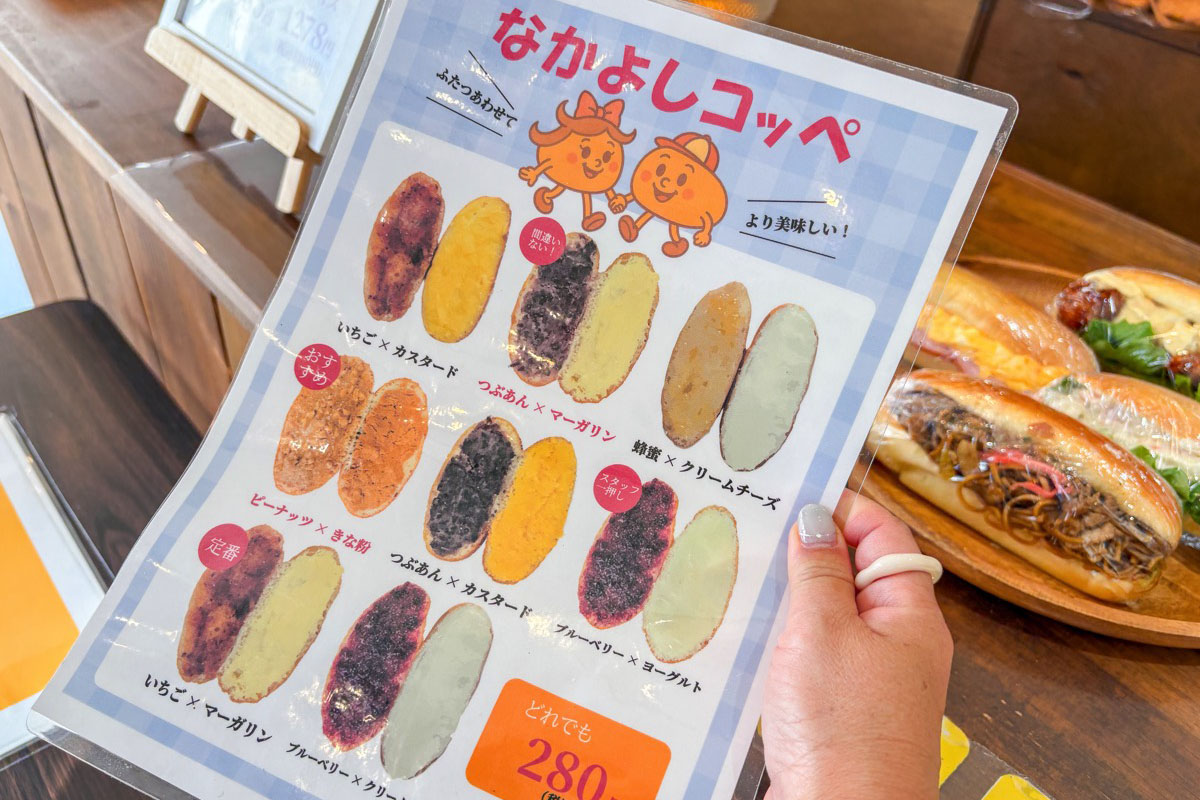 1278円
なかよしコッペ
ふたつあわせて
より美味しい！
いちご×カスタード
間違い
ない！
つぶあん×マーガリン
蜂蜜×クリームチーズ
おす
すめ
ピーナッツ×きな粉
つぶあん×カスタード
スタッフ
一押し
ブルーベリー×ヨーグルト
定番
いちご×マーガリン
ブルーベリー×クリー
どれでも
280